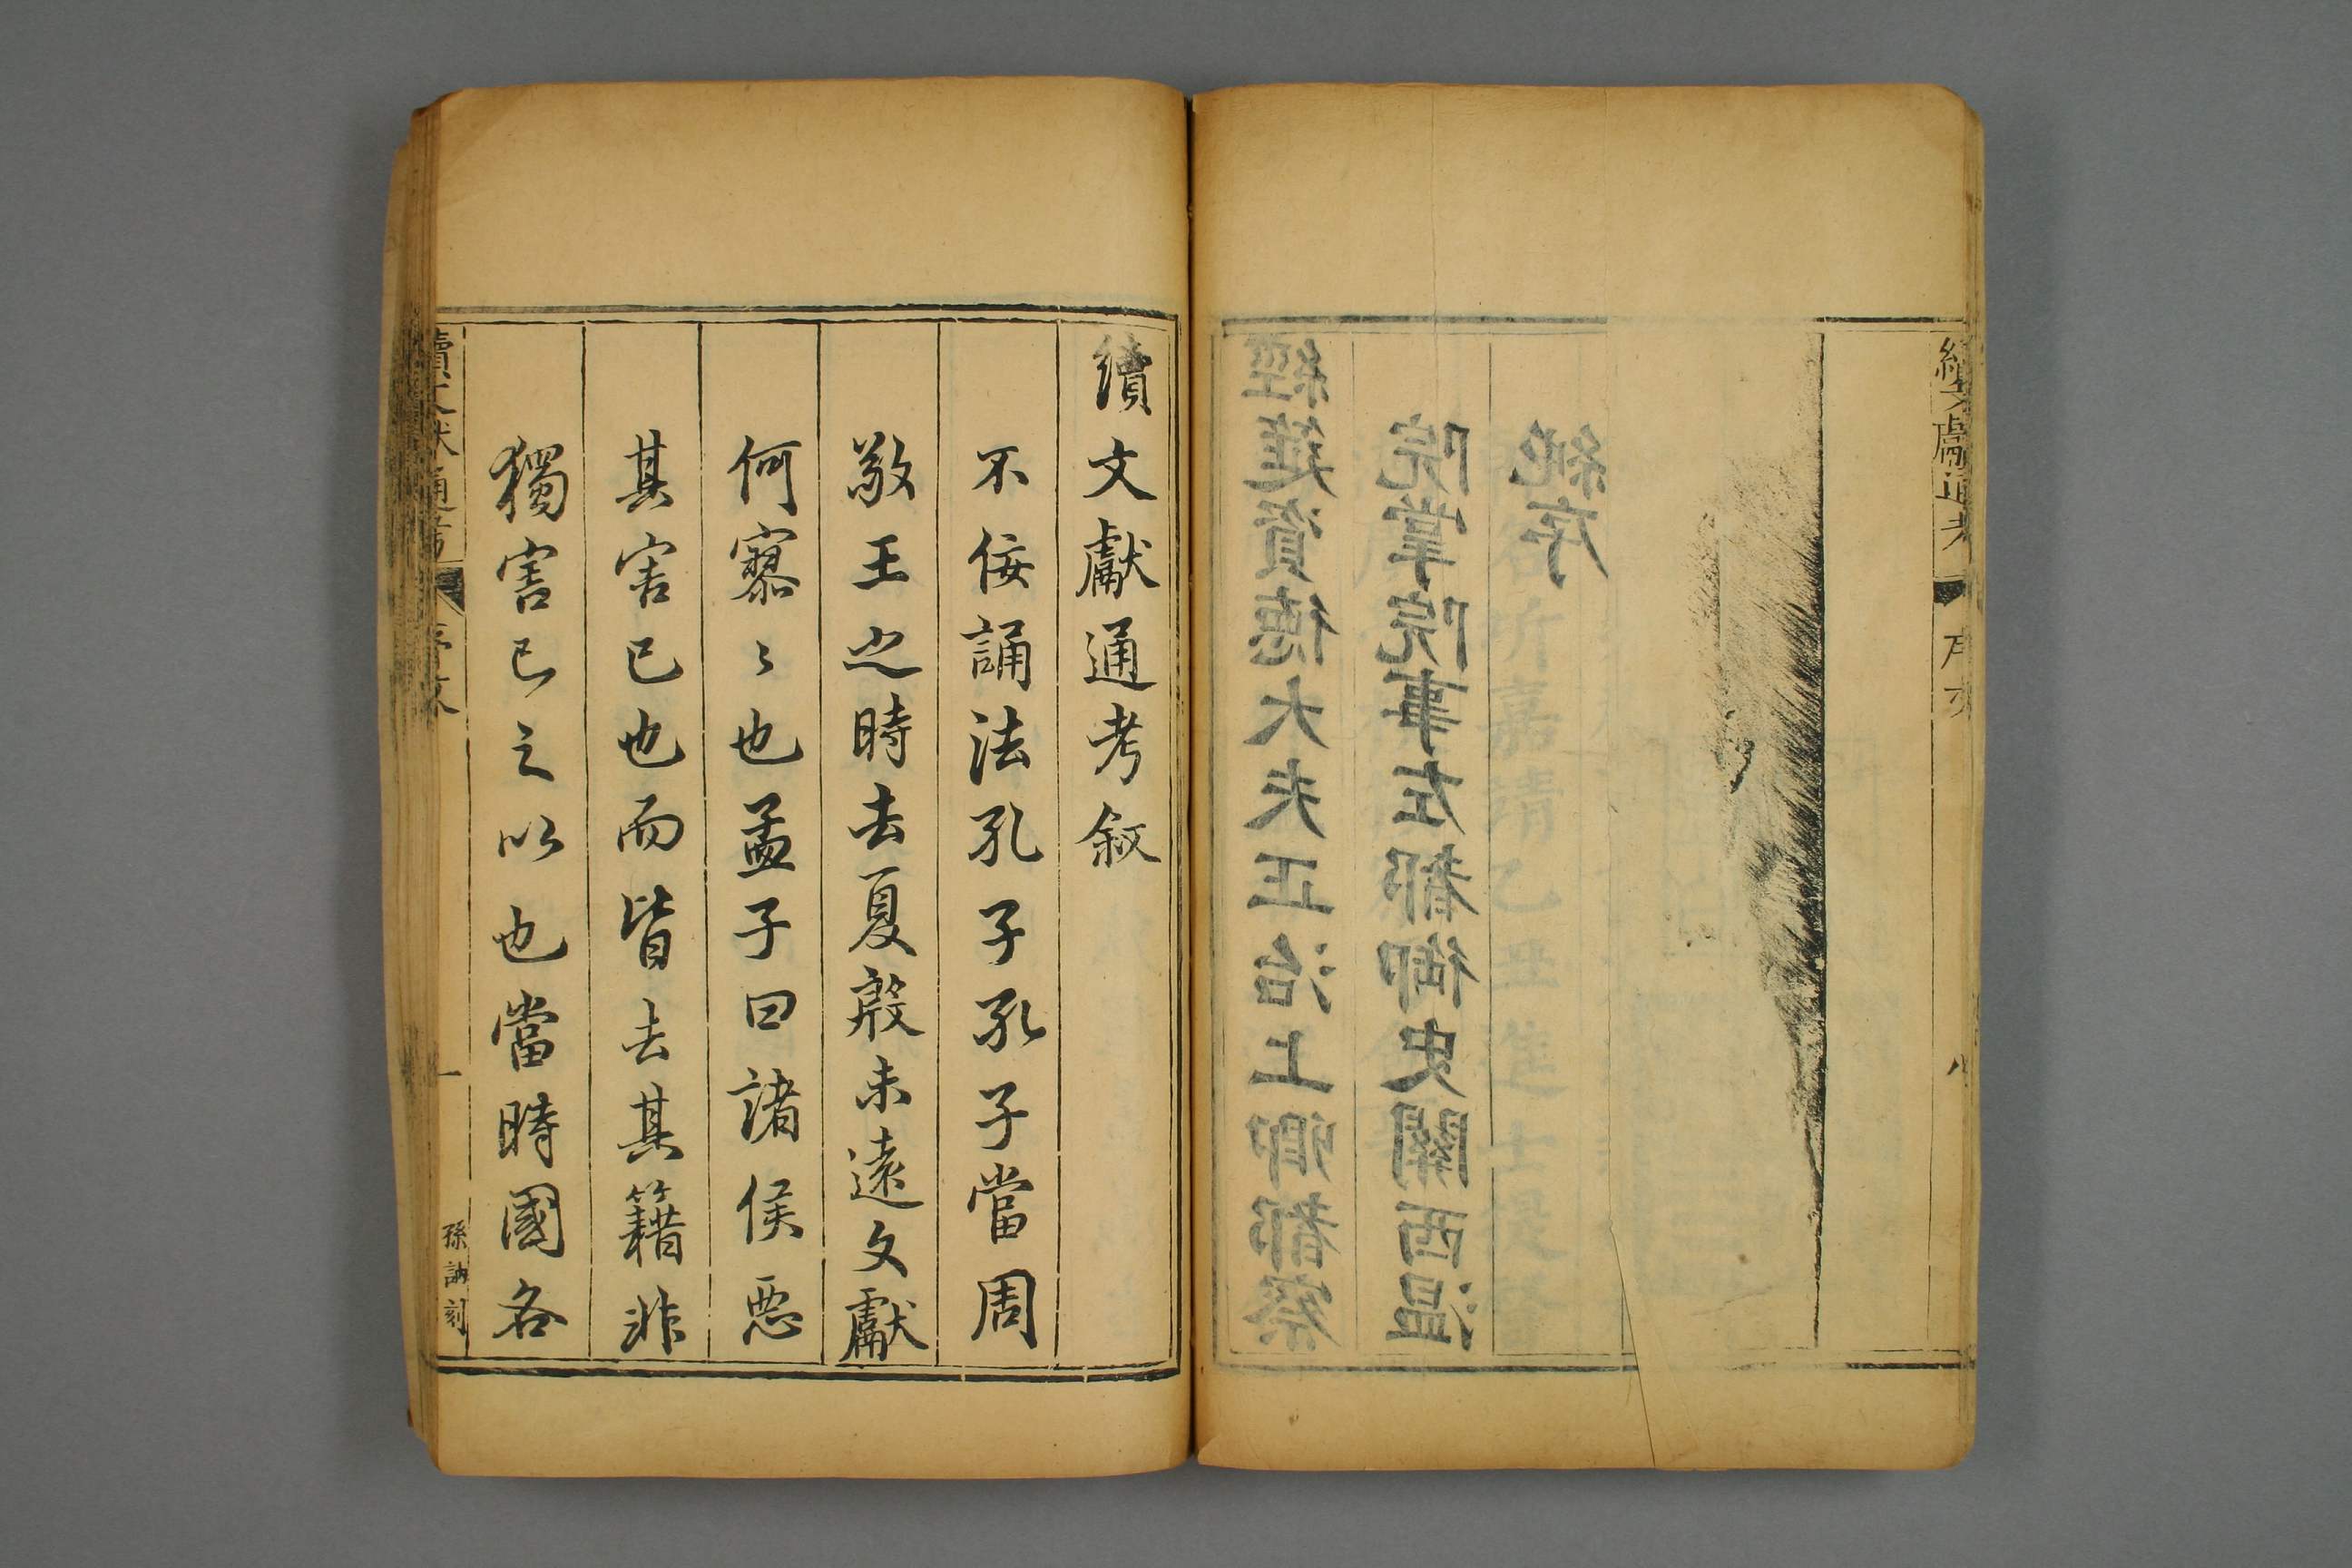 續文獻通考
序文
經筵資德大夫正治上卿都察
院掌院事左都御史關西温
純序
續文獻通考叙
不佞誦法孔子孔子當周
敬王之時去夏殷未遠文獻
何寥〻也孟子曰諸侯惡
其害已也而皆去其籍非
獨害已之以也當時國各
續文献通考
序文
一
孫訥刻